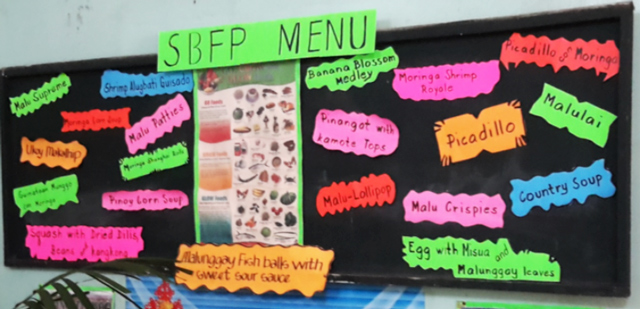 SBFP MENU
Malu Supreme
Shrimp Alugbati Guisado
Malu Patties
Ukoy Malatrip
Pinoy Corn Soup
Squash with Dried Dilis,
beans & kangkong
Malunggay Fish balls with
sweet sour sauce
Banana Blossom
Medley
Moringa Shrimp
Royale
Picadillo of Moringa
Pinangat with
kamote Tops
Picadillo
Malulai
Malu-Lollipop
Malu Crispies
Country Soup
Egg with Misua and
Malunggay leaves